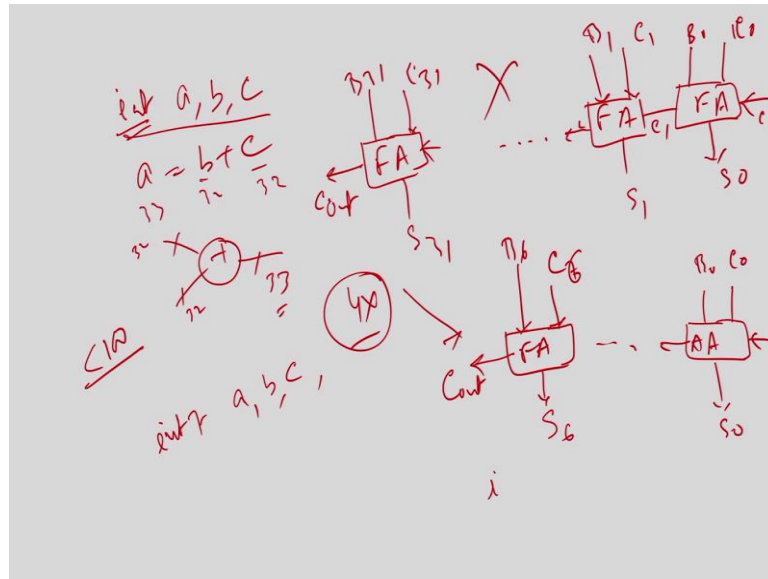 int a, b, c
a = b + c
33 32 32
32 + 33
32
<100
int7 a, b, c,
4x
B31 C31
FA
Cout
S31
....
B1 C1
FA
C1
S1
B0 C0
FA
S0
B6 C6
FA
Cout
S6
...
B0 C0
S0
i